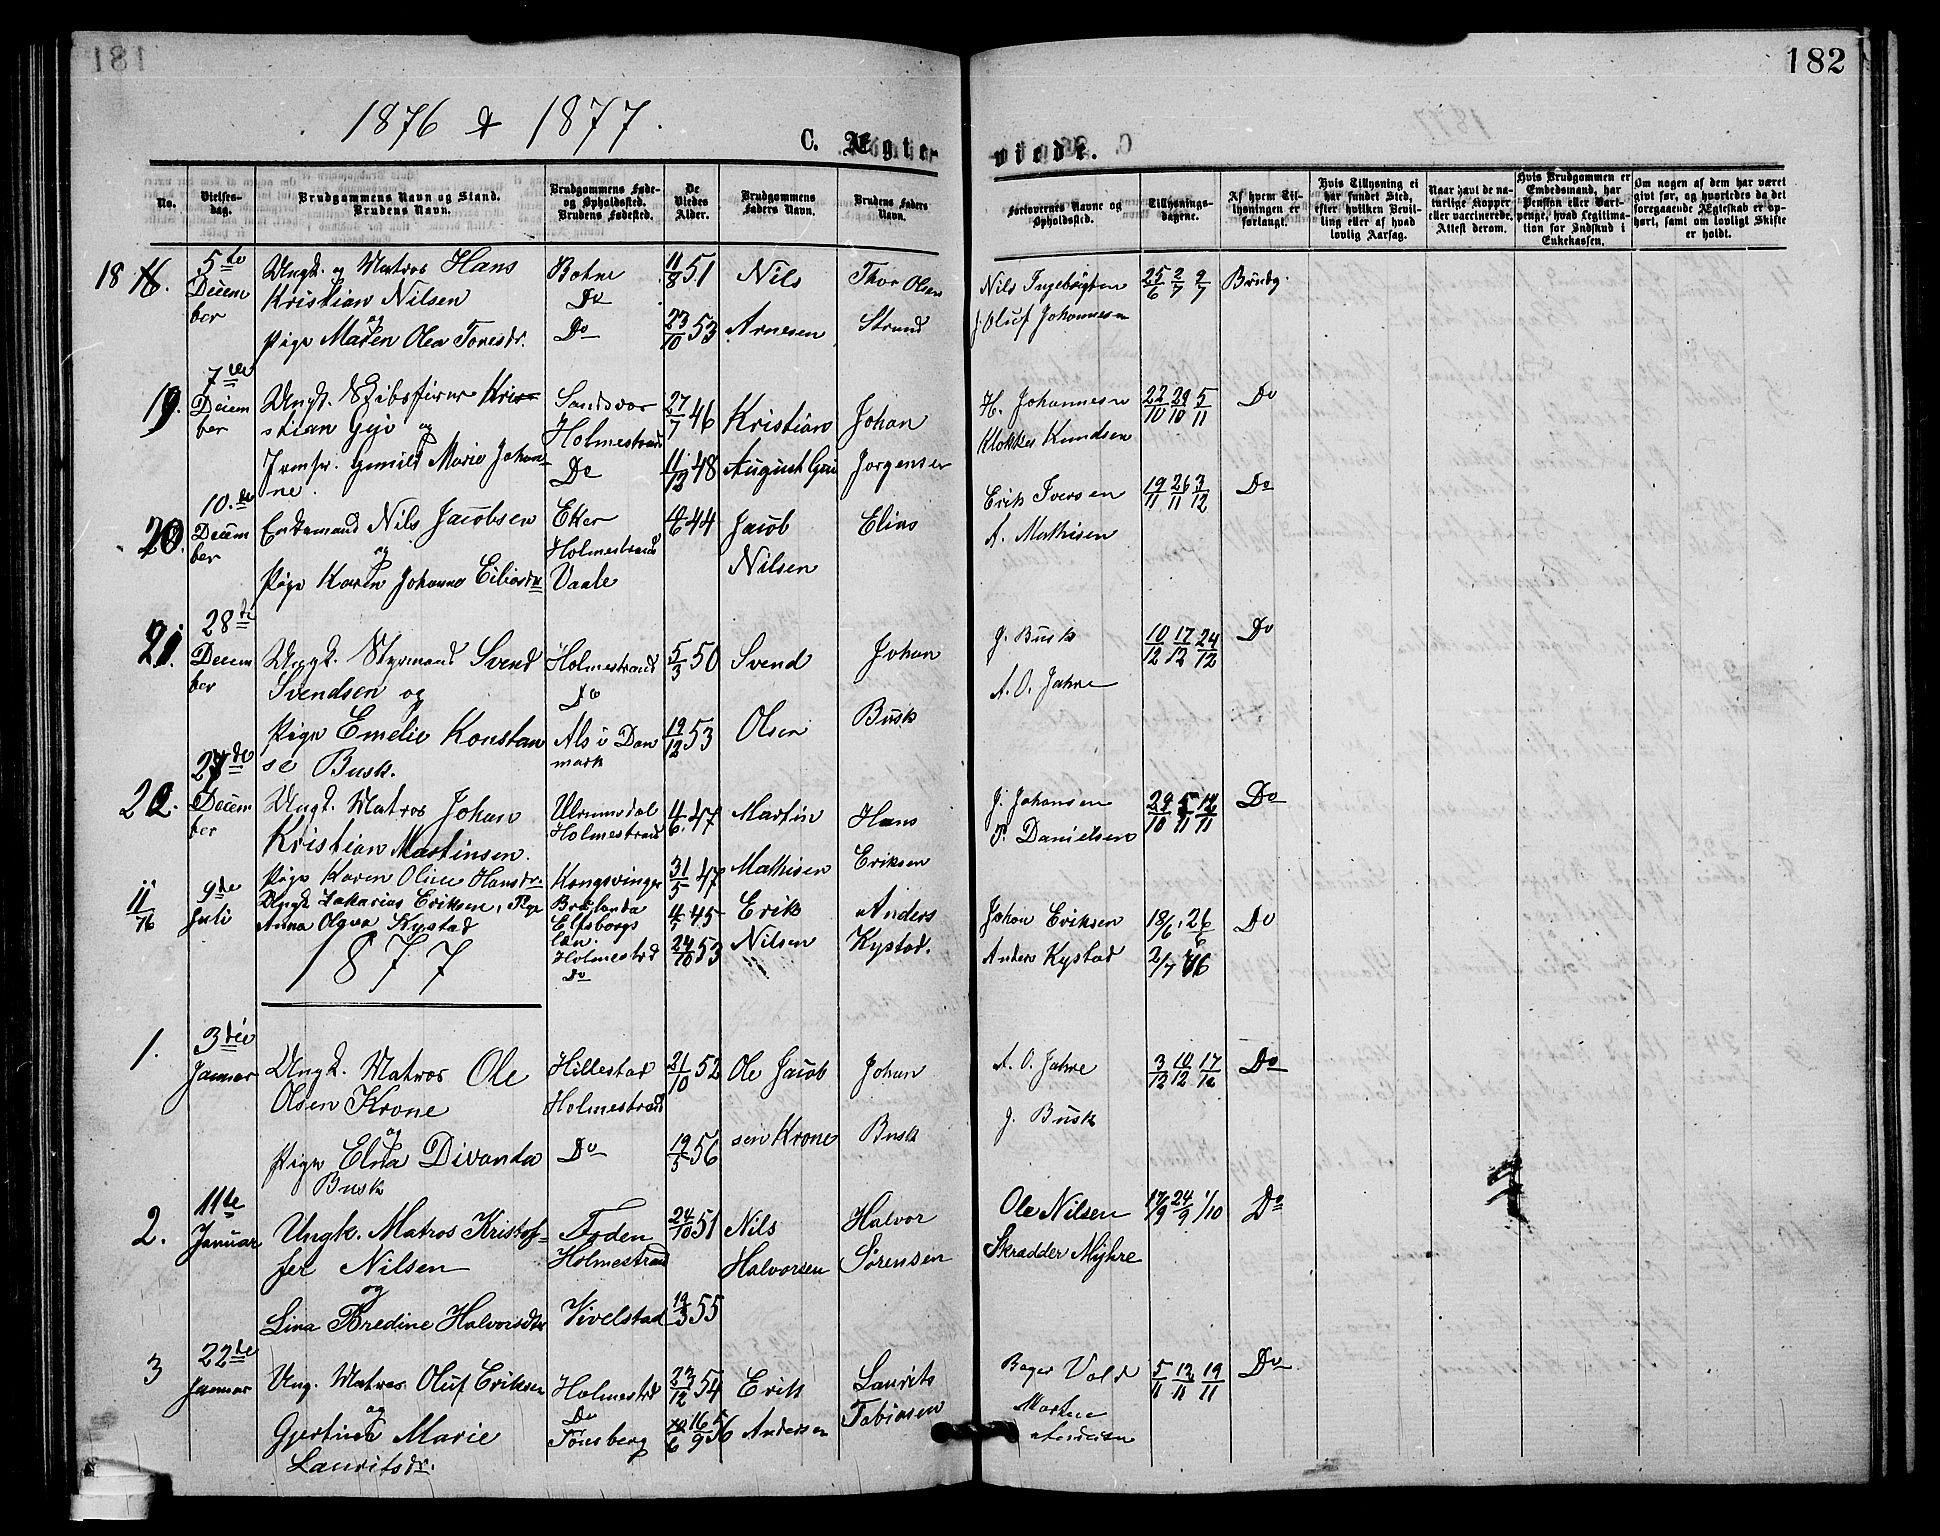 181
182
1876 & 1877.
C. Ægte
viede.
No.
Vielses-
dag.
Brudgommens Navn og Stand.
Brudens Navn.
Brudgommens Føde-
og Opholdssted.
Brudens Fødested.
De
Viedes
Alder.
Brudgommens
Faders Navn.
Brudens Faders
Navn.
Forlovernes Navne og
Opholdssted.
Tillysnings-
dagene.
Af hvem Til-
lysningen er
forlangt.
Hvis Tillysning ei
har fundet Sted,
efter hvilken Bevil-
ling eller af hvad
lovlig Aarsag.
Naar havt de na-
turlige Kopper
eller vaccinerede.
Attest derom.
Hvis Brudgommen er
Embedsmand, har
Pension eller Vart-
penge, hvad Legitima-
tion for Indskud i
Enkekassen.
Om nogen af dem har været
givt før, og hvorledes da det
foregaaende Ægteskab er op-
hørt, samt om lovligt Skifte
er holdt.
18
5te
Decem
ber
Ungk. og Matros Hans
Kristian Nilsen
og
Pige Maren Olea Toresdr.
Botne
Do
Do
11/8 51
23/10 53
Nils
Arnesen
Thor Olsen
Strand
Nils Ingebrigtsen
J. Oluf Johannesen
25/6 2/7 9/7
Brudg.
19.
7de
Decem
ber
Ungk. Skibsfører Kri-
stian Gjø
og
Jomfr. Gunild Marie Johan-
ne.
Sandsvær
Holmestrand
Do
27/7 46
11/12 48
Kristian
August Gjø
Johan
Jørgensen
H. Johannesen
Klokker Knudsen
22/10 29/10 5/11
Do
20.
10.de
Decem
ber
Enkemand Nils Jacobsen
og
Pige Karen Johanne Eliasdr
Eker
Holmestrand
Vaale
44
Jacob
Nilsen
Elias
Erik Iversen
A. Mathisen
19/11 26/11 3/12
Do
21.
28de
Decem
ber
Ungk. Styrmand Svend
Svendsen og
Pige Emelie Konstan
se Busk.
Holmestrand
Do
Als i Dan
mark
5/3 50
19/12 53
Svend
Olsen
Johan
Busk
J. Busk
A. O. Jahre
10/12 17/12 24/12
Do
22.
27de
Decem
ber
Ungk. Matros Johan
Kristian Martinsen.
Pige Karen Oline Hansdr.
Holmestrand
Kongsvinger
4/6 47
31/5 47
Martin
Mathisen
Hans
Eriksen
J. Johansen
P. Danielsen
29/10 5/11 12/11
Do
11/76
9de
Juli
Ungk Zakarias Eriksen, Pige
Anna Olava Kystad
Elfsborgs
län.
Holmestrd
Do
45
24/10 53
Erik
Nilsen
Anders
Kystad.
Johan Eriksen
Anders Kystad
18/6, 26/6
2/7 76
Do
1877
1.
3die
Januar
Ungk. Matros Ole
Olsen Krone
og
Pige Elna Divanda
Busk
Hillestad
Holmestrand
Do
21/10 52
19/5 56
Ole Jacob
sen Krone
Johan
Busk
A. O. Jahre
J. Busk
3/12 10/12 17/12
Do
2.
11te
Januar
Ungk. Matros Kristof-
fer Nilsen
og
Lina Bredine Halvorsdtr
Foden
Holmestrand
Vivelstad
24/10 51
19/3 55
Nils
Halvorsen
Halvor
Sørensen
Ole Nilsen
Skrædder Myhre
17/9 24/9 1/10
Do
3
22de
Januar
Ung. Matros Oluf Eriksen
og
Gjertine Marie
Lauritsdr.
Holmestrd
Do
Tønsberg
23/12 54
16/9 56
Erik
Andersen
Laurits
Tobiasen
Bager Vold
Martin
Andersen
5/11 12/11 19/11
Do